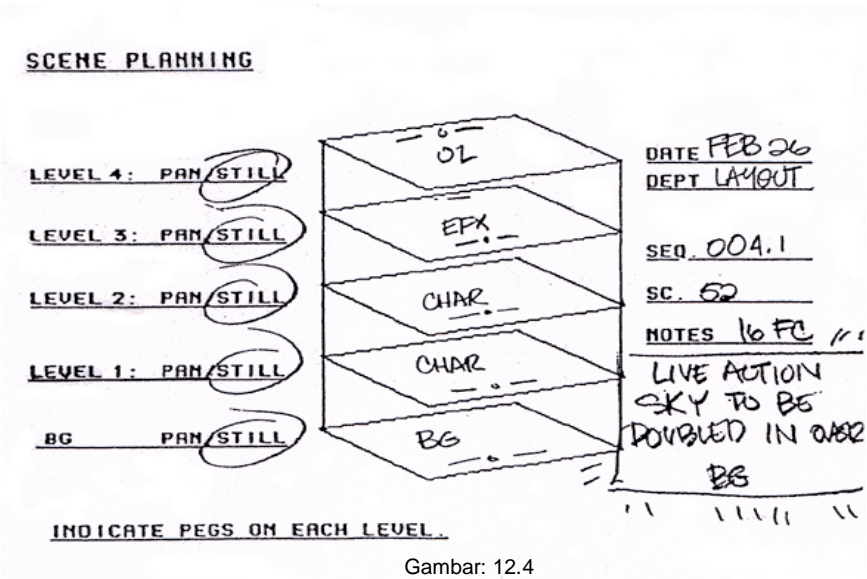 SCENE PLANNING
LEVEL 4: PAN/STILL
LEVEL 3: PAN/STILL
LEVEL 2: PAN/STILL
LEVEL 1: PAN/STILL
BG PAN/STILL
OL
EFX
CHAR
CHAR
BG
DATE FEB 26
DEPT LAYOUT
SEQ. 004.1
SC. 52
NOTES 16 FC
LIVE ACTION
SKY TO BE
DOUBLED IN OVER
BG
INDICATE PEGS ON EACH LEVEL.
Gambar: 12.4